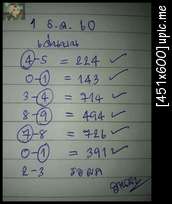 1 ธ.ค. 60
เด่นบน
4-5 = 224 ✓
0-1 = 143 ✓
3-4 = 714 ✓
8-9 = 494 ✓
7-8 = 726 ✓
0-1 = 391 ✓
2-3 รอผล
[451x600] upic.me